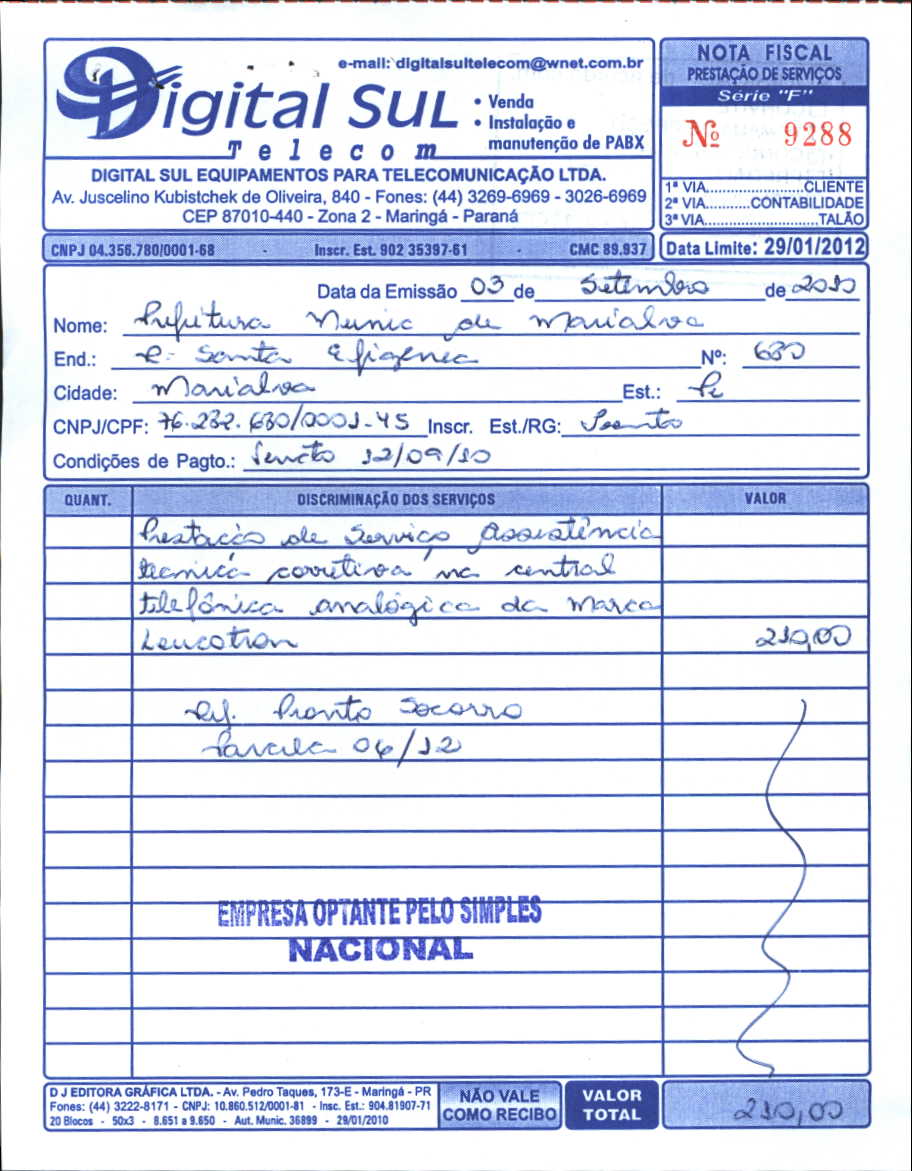 e-mail: digitalsultelecom@wnet.com.br
Digital Sul
Telecom
• Venda
• Instalação e
manutenção de PABX
DIGITAL SUL EQUIPAMENTOS PARA TELECOMUNICAÇÃO LTDA.
Av. Juscelino Kubistchek de Oliveira, 840 - Fones: (44) 3269-6969 - 3026-6969
CEP 87010-440 - Zona 2 - Maringá - Paraná
NOTA FISCAL
PRESTAÇÃO DE SERVIÇOS
Série "F"
Nº 9288
1ª VIA......................CLIENTE
2ª VIA..........CONTABILIDADE
3ª VIA.........................TALÃO
CNPJ 04.356.780/0001-68 - Inscr. Est. 902 35397-61 - CMC 89.937
Data Limite: 29/01/2012
Data da Emissão 03 de Setembro de 2010
Nome: Prefeitura Munic de Marialva
End.: R: Santa Efigenea Nº: 680
Cidade: Marialva Est.: Pr
CNPJ/CPF: 76.282.680/0001-45 Inscr. Est./RG: Isento
Condições de Pagto.: Vencto 12/09/10
QUANT. DISCRIMINAÇÃO DOS SERVIÇOS VALOR
Prestação de Serviço Assistência
tecnica corretiva na central
telefônica analógica da marca
Leucotron 210,00
Ref. Pronto Socorro
Parcela 06/12
EMPRESA OPTANTE PELO SIMPLES
NACIONAL
D J EDITORA GRÁFICA LTDA. - Av. Pedro Taques, 173-E - Maringá - PR
Fones: (44) 3222-8171 - CNPJ: 10.860.512/0001-81 - Insc. Est.: 904.81907-71
20 Blocos - 50x3 - 8.651 a 9.650 - Aut. Munic. 36899 - 29/01/2010
NÃO VALE
COMO RECIBO
VALOR
TOTAL
210,00